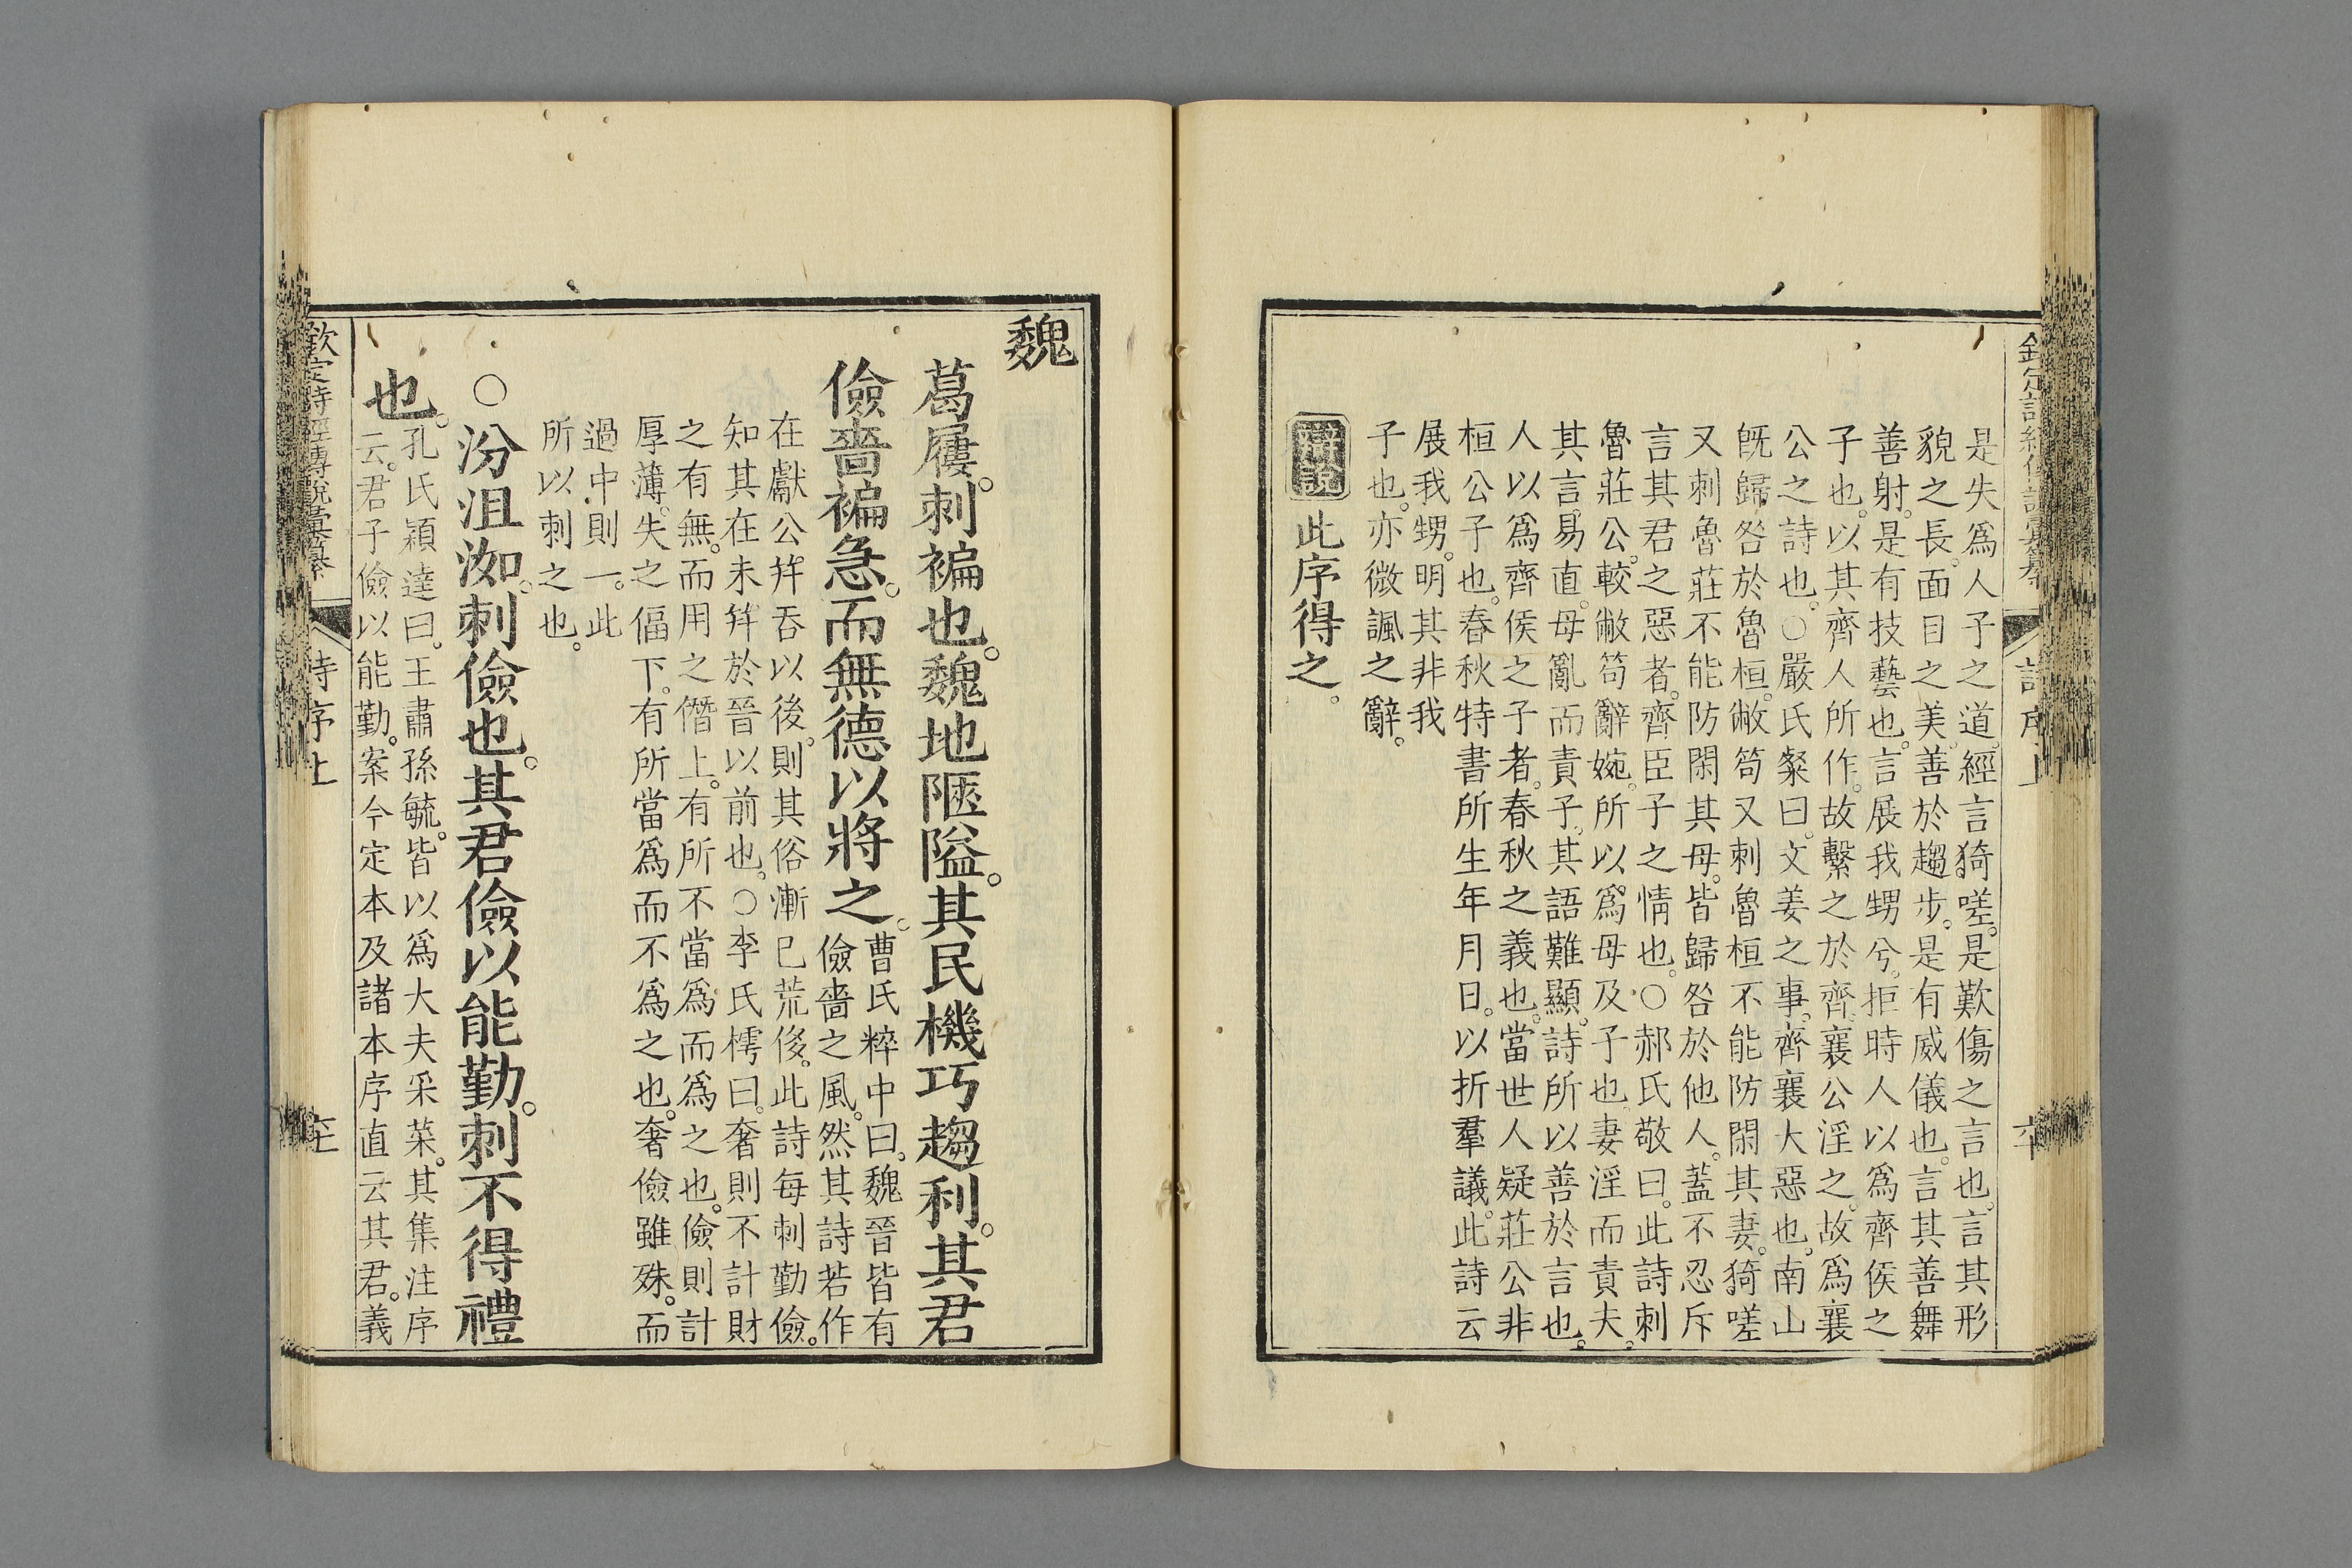 是失爲人子之道。經言猗嗟。是歎傷之言也。言其形
貌之長。面目之美。善於趨步。是有威儀也。言其善舞
善射。是有技藝也。言展我甥兮。拒時人以爲齊侯之
子也。以其齊人所作。故繫之於齊。襄公淫之。故爲襄
公之詩也。○嚴氏粲曰。文姜之事。齊襄大惡也。南山
旣歸咎於魯桓。敝笱又刺魯桓不能防閑其妻。猗嗟
又刺魯莊不能防閑其母。皆歸咎於他人。蓋不忍斥
言其君之惡者。齊臣子之情也。○郝氏敬曰。此詩刺
魯莊公。較敝笱辭婉。所以爲母及子也。妻淫而責夫。
其言易直。母亂而責子。其語難顯。詩所以善於言也。
人以爲齊侯之子者。春秋之義也。當世人疑莊公非
桓公子也。春秋特書所生年月日。以折羣議。此詩云
展我甥。明其非我
子也。亦微諷之辭。
辯說 此序得之。
魏
葛屨。刺褊也。魏地陿隘。其民機巧趨利。其君
儉嗇褊急。而無德以將之。
曹氏粹中曰。魏晉皆有
儉嗇之風。然其詩若作
在獻公幷吞以後。則其俗漸已荒侈。此詩每刺勤儉。
知其在未幷於晉以前也。○李氏樗曰。奢則不計財
之有無。而用之僭上。有所不當爲而爲之也。儉則計
厚薄。失之偪下。有所當爲而不爲之也。奢儉雖殊。而
過中則一。此
所以刺之也。
○汾沮洳。刺儉也。其君儉以能勤。刺不得禮
也。
孔氏穎達曰。王肅孫毓。皆以爲大夫采菜。其集注序
云。君子儉以能勤。案今定本及諸本序直云其君。義
欽定詩經傳說彙纂 詩序上